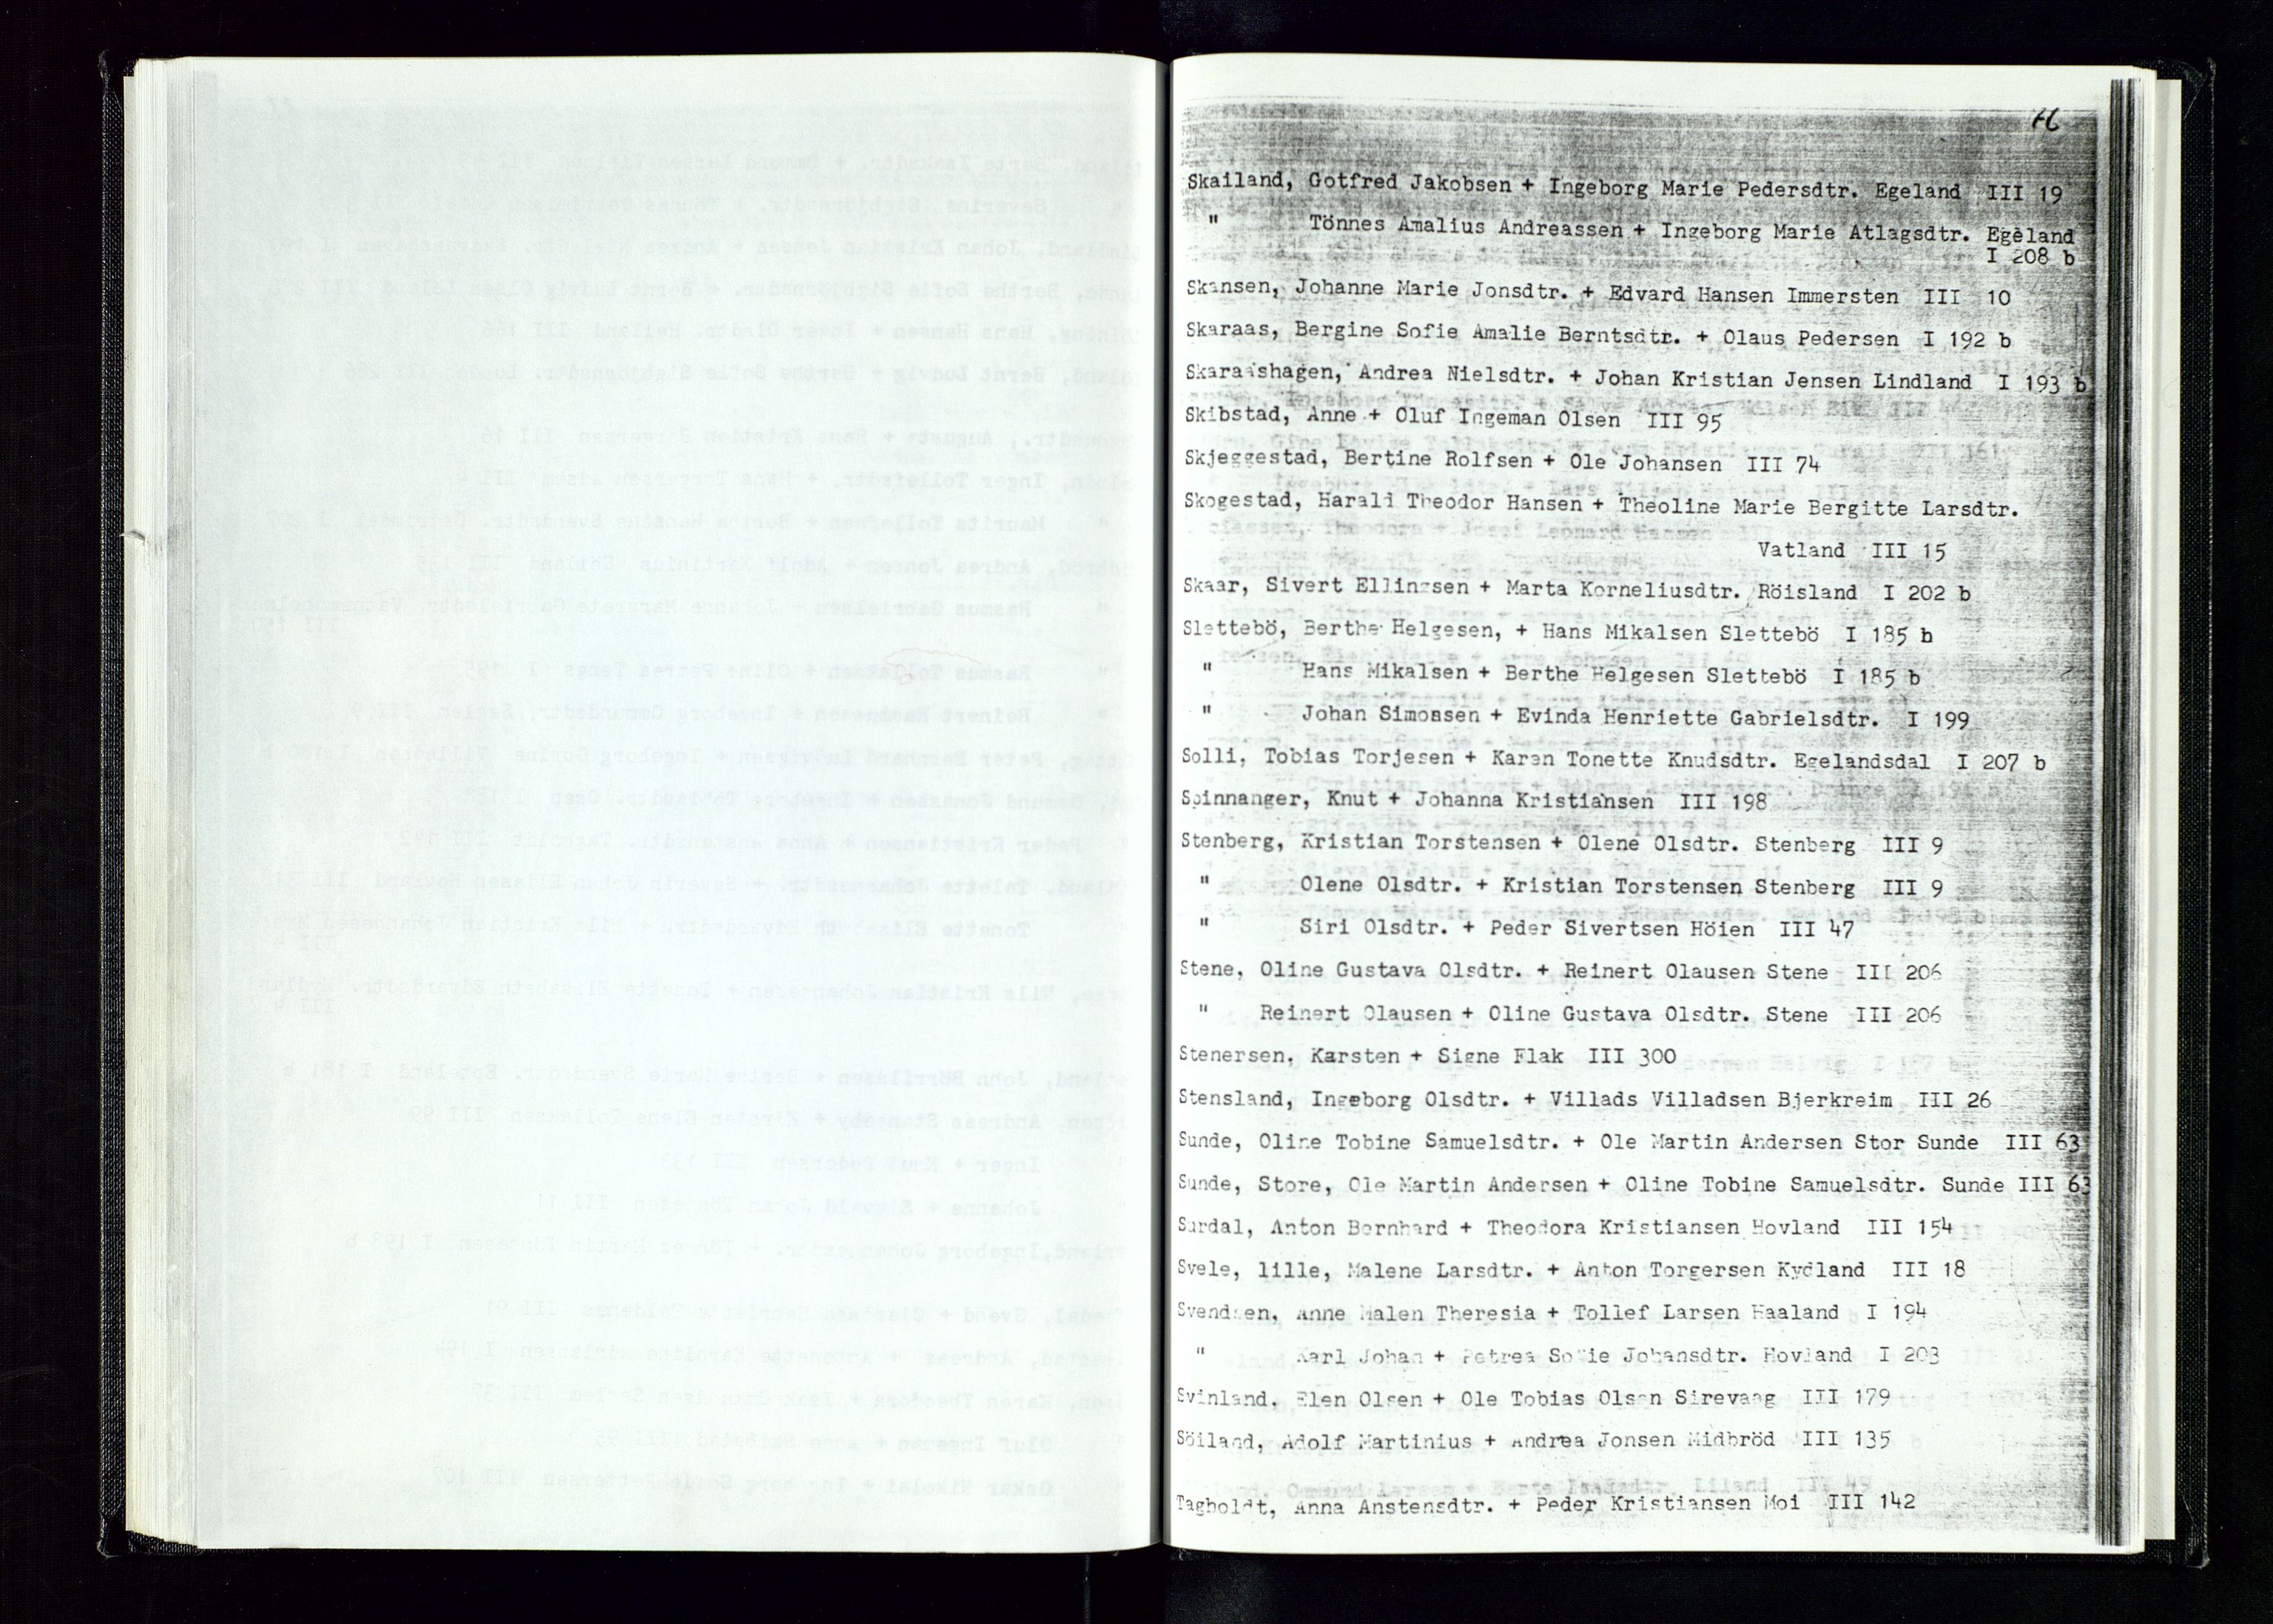 16
Skailand, Gotfred Jakobsen + Ingeborg Marie Pedersdtr. Egeland III 19
" Tönnes Amalius Andreassen + Ingeborg Marie Atlagsdtr. Egeland
I 208 b
Skansen, Johanne Marie Jonsdtr. + Edvard Hansen Immersten III 10
Skaraas, Bergine Sofie Amalie Berntsdtr. + Olaus Pedersen I 192 b
Skaraashagen, Andrea Nielsdtr. + Johan Kristian Jensen Lindland I 193 b
Skibstad, Anne + Oluf Ingeman Olsen III 95
Skjeggestad, Bertine Rolfsen + Ole Johansen III 74
Skogestad, Harald Theodor Hansen + Theoline Marie Bergitte Larsdtr.
Vatland III 15
Skaar, Sivert Ellingsen + Marta Korneliusdtr. Röisland I 202 b
Slettebö, Berthe Helgesen, + Hans Mikalsen Slettebö I 185 b
" Hans Mikalsen + Berthe Helgesen Slettebö I 185 b
" Johan Simonsen + Evinda Henriette Gabrielsdtr. I 199
Solli, Tobias Torjesen + Karen Tonette Knudsdtr. Egelandsdal I 207 b
Spinnanger, Knut + Johanna Kristiansen III 198
Stenberg, Kristian Torstensen + Olene Olsdtr. Stenberg III 9
" Olene Olsdtr. + Kristian Torstensen Stenberg III 9
" Siri Olsdtr. + Peder Sivertsen Höien III 47
Stene, Oline Gustava Olsdtr. + Reinert Olausen Stene III 206
" Reinert Olausen + Oline Gustava Olsdtr. Stene III 206
Stenersen, Karsten + Signe Flak III 300
Stensland, Ingeborg Olsdtr. + Villads Villadsen Bjerkreim III 26
Sunde, Oline Tobine Samuelsdtr. + Ole Martin Andersen Stor Sunde III 63
Sunde, Store, Ole Martin Andersen + Oline Tobine Samuelsdtr. Sunde III 63
Surdal, Anton Bernhard + Theodora Kristiansen Hovland III 154
Svele, lille, Malene Larsdtr. + Anton Torgersen Kydland III 18
Svendsen, Anne Malen Theresia + Tollef Larsen Haaland I 194
" Karl Johan + Petrea Sofie Johansdtr. Hovland I 203
Svinland, Elen Olsen + Ole Tobias Olsen Sirevaag III 179
Söiland, Adolf Martinius + Andrea Jonsen Midbröd III 135
Tagholdt, Anna Anstensdtr. + Peder Kristiansen Moi III 142